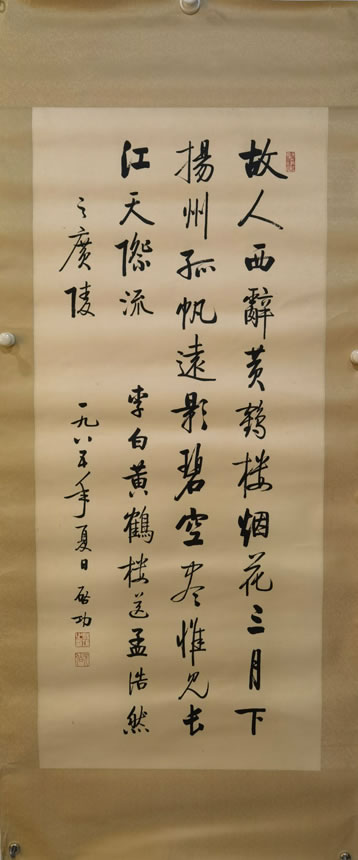 故人西辭黄鹤楼烟花三月下
揚州孤帆遠影碧空尽惟见长
江天際流
李白黄鶴楼送孟浩然
之廣陵
一九八五年夏日 启功